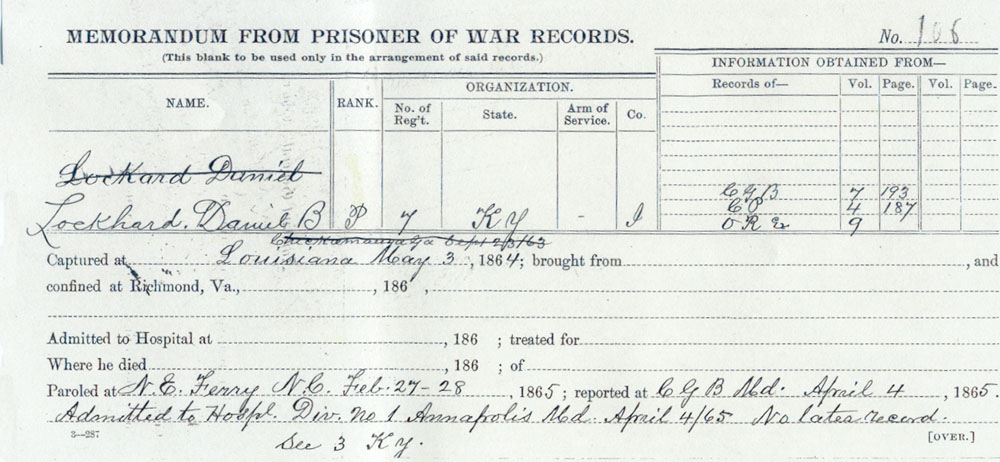 MEMORANDUM FROM PRISONER OF WAR RECORDS.
(This blank to be used only in the arrangement of said records.)
No. 106
INFORMATION OBTAINED FROM—
Records of— Vol. Page. Vol. Page.
NAME. RANK. ORGANIZATION.
No. of Reg't. State. Arm of Service. Co.
Lockard Daniel
C G B 7 193
C P 4 187
Lockhard, Daniel B P 7 KY - I
O R & 9
Chickamauga Ga Sept 2/3/63
Captured at Louisiana May 3, 1864; brought from , and
confined at Richmond, Va., , 186 ,
Admitted to Hospital at , 186 ; treated for
Where he died , 186 ; of
Paroled at N.E. Ferry N.C. Feb. 27-28 1865; reported at C G B Md. April 4, 1865.
Admitted to Hospl. Div. No 1 Annapolis Md. April 4/65 No later record.
3—287 [OVER.]
See 3 KY.